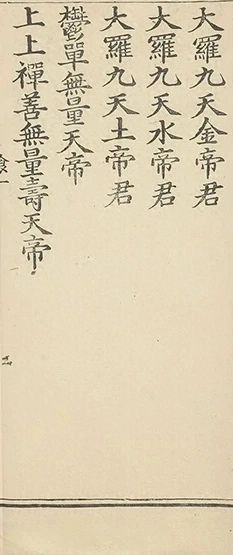 大羅九天金帝君
大羅九天水帝君
大羅九天土帝君
鬱單無量天帝
上上禪善無量壽天帝